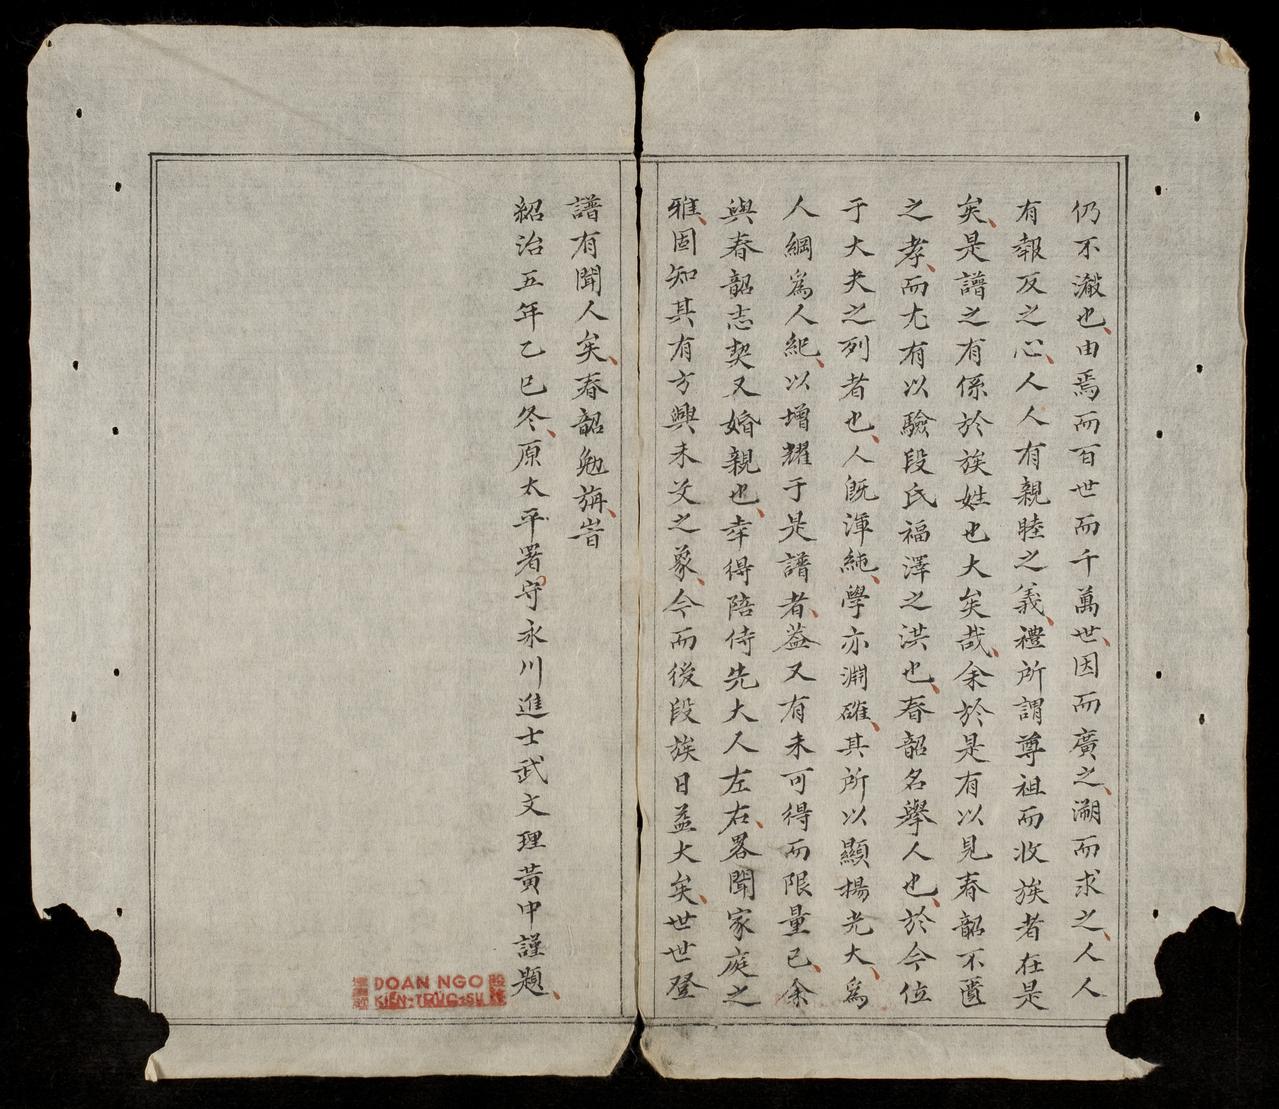 仍不濺也由焉而百世而千萬世因而廣之溯而求之人人
有報反之心人人有親睦之義禮所謂尊祖而收族者在是
矣是譜之有係於族姓也大矣哉余於是有以見春韶不匱
之孝而尤有以驗段氏福澤之洪也春韶名舉人也於今位
于大夫之列者也人既渾純學亦淵確其所以顯揚光大為
人綱為人紀以增耀于是譜者蓋又有未可得而限量已余
與春韶志契又婚親也幸得陪侍先大人左右畧聞家庭之
雅固知其有方興未艾之象今而後段族日益大矣世世登
譜有聞人矣春韶勉旃旹
紹治五年乙巳冬原太平署守永川進士武文理黃中謹題
DOAN NGO
KIẾN-TRÚC-SƯ